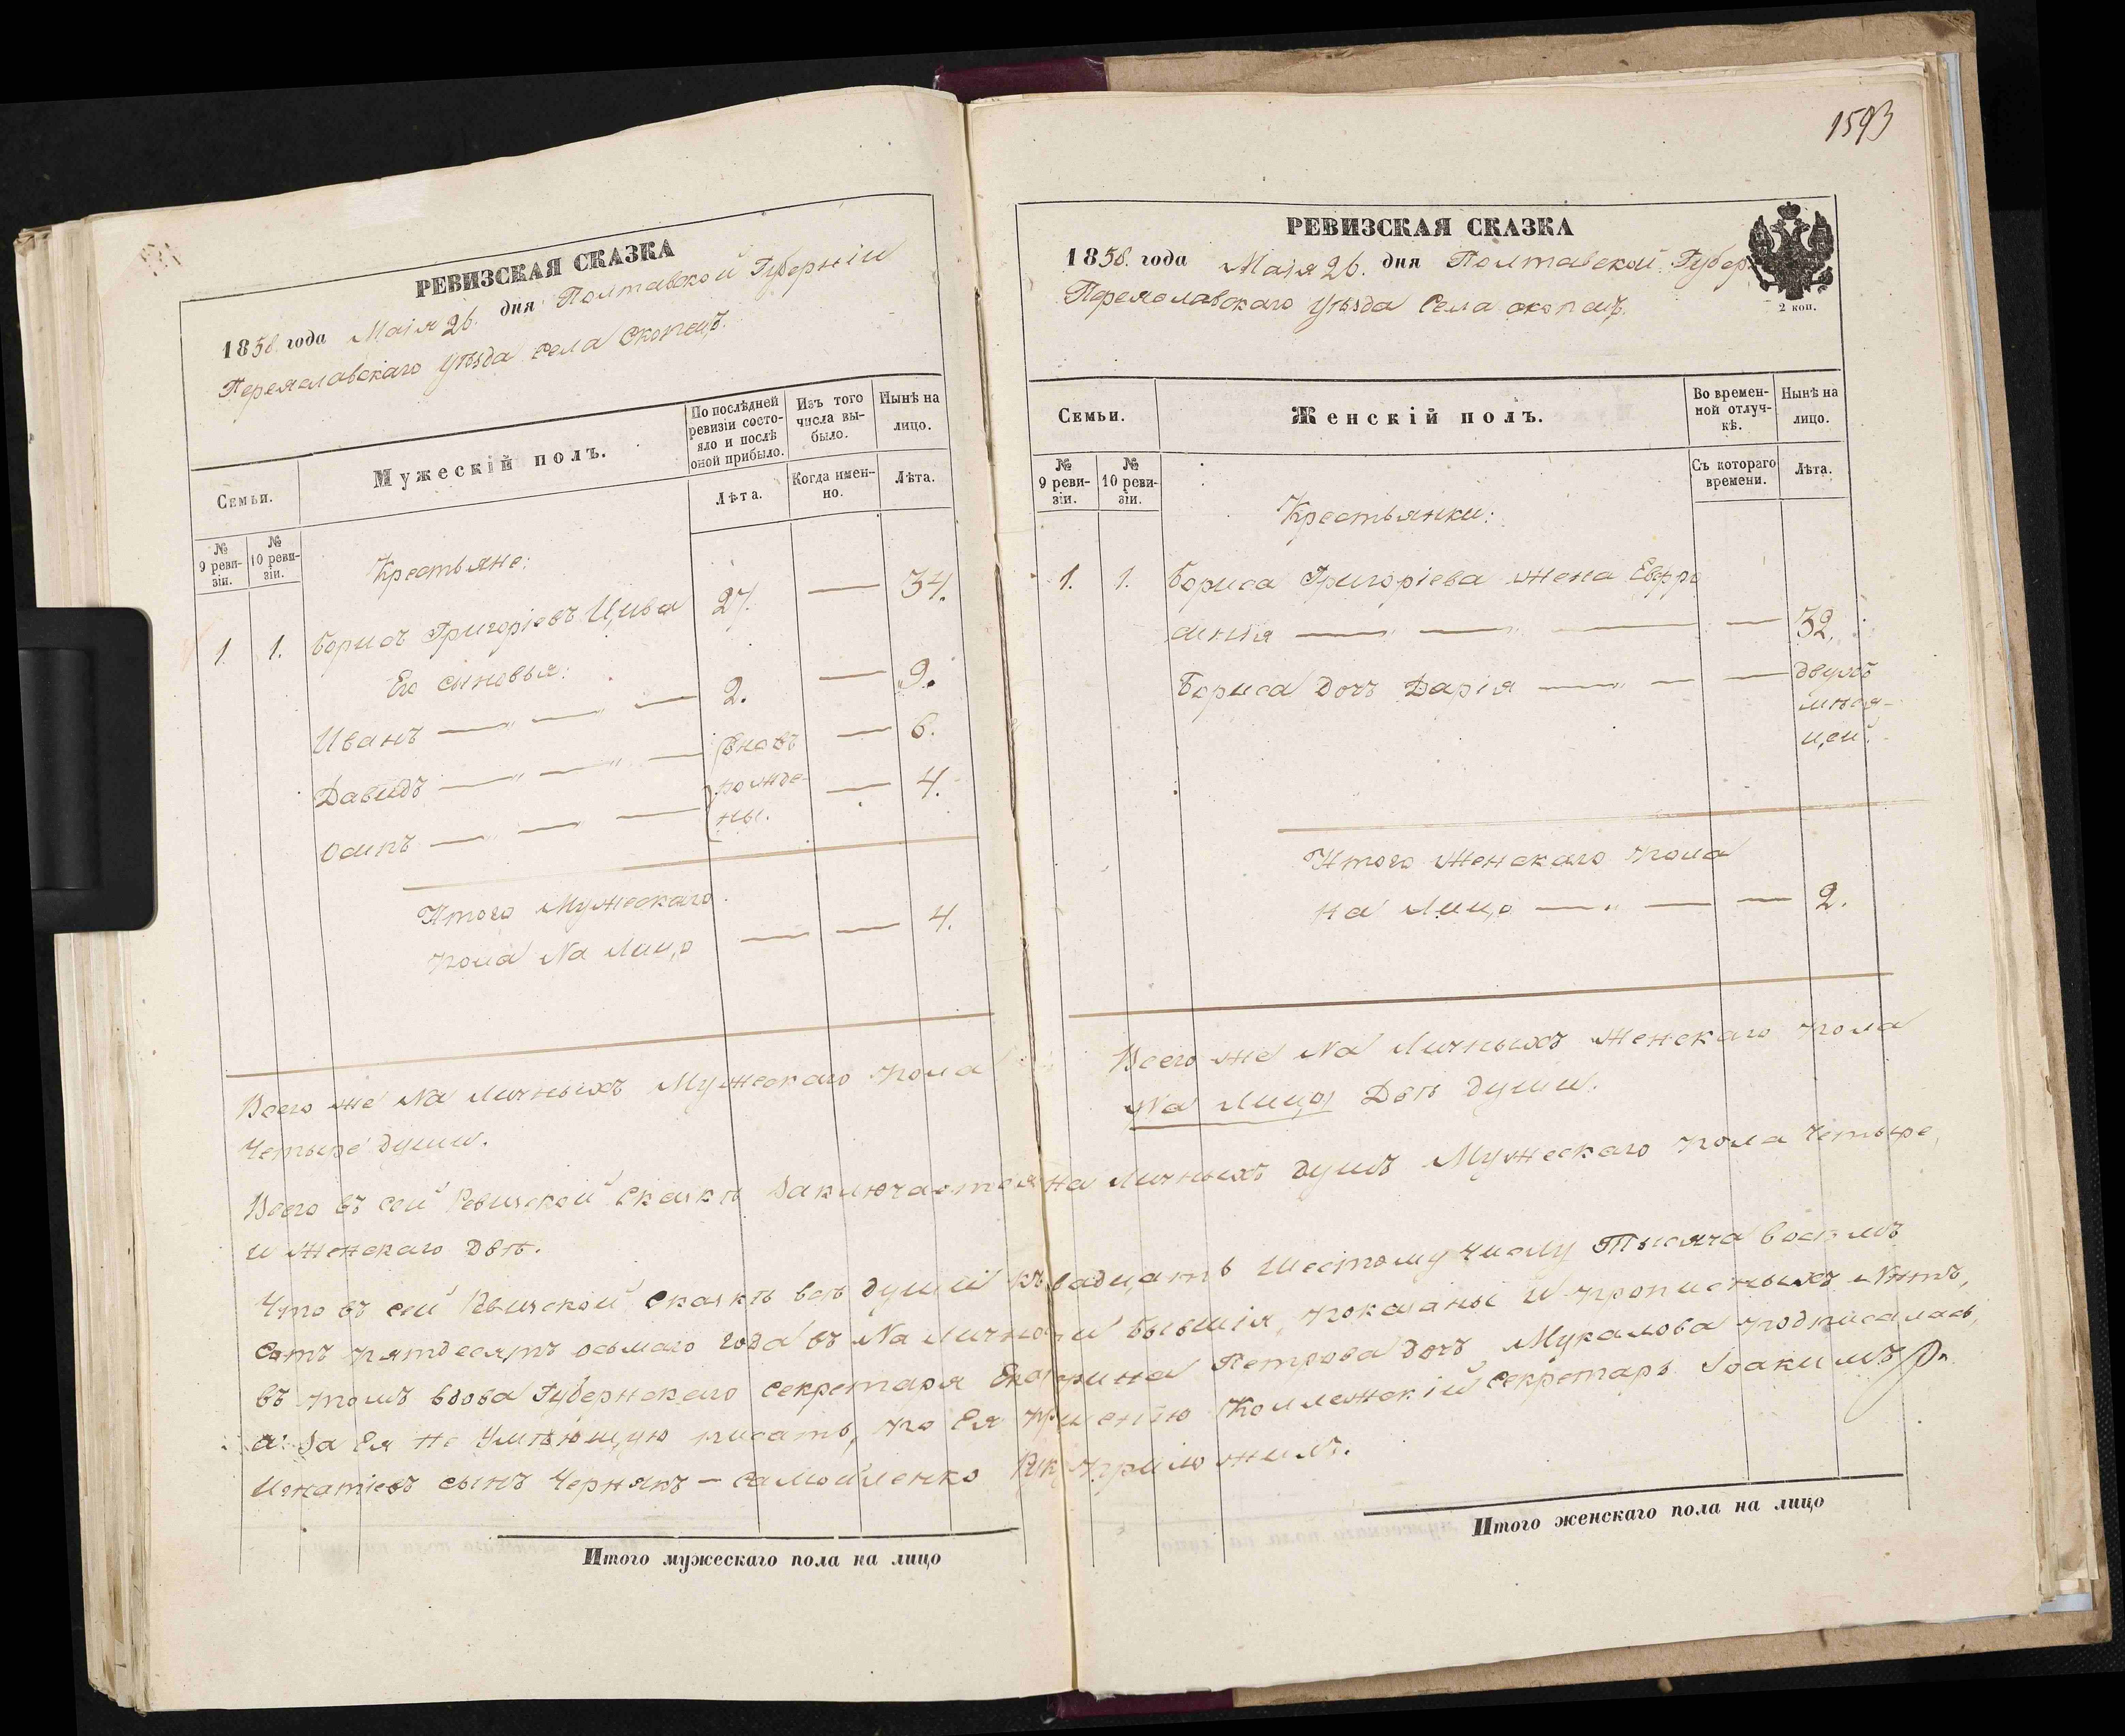 1593
РЕВИЗСКАЯ СКАЗКА
1858. года Маія 26. дня Полтавской Губерніи
Переяславскаго уѣзда села Скопецъ.
Семьи.
Мужескій полъ.
По послѣдней ревизіи состояло и послѣ оной прибыло.
Изъ того числа выбыло.
Нынѣ на лицо.
Лѣта.
Когда именно.
Лѣта.
№ 9 ревизіи.
№ 10 ревизіи.
Крестьяне:
1. 1. Борисъ Григоріевъ Цива 27. — 34.
Его сыновья:
Иванъ — „ — „ — 2. — 9.
Давидъ — „ — „ — вновь — 6.
Осипъ — „ — „ — рожде- — 4.
ны.
Итого Мужескаго
пола На Лицо — — 4.
Всего же На Личныхъ Мужескаго пола
Четыре души.
РЕВИЗСКАЯ СКАЗКА
1858. года Маія 26. дня Полтавской Губер.
Переяславскаго уѣзда Села скопецъ.
2 коп.
Семьи.
Женскій полъ.
Во временной отлучкѣ.
Нынѣ на лицо.
Съ котораго времени.
Лѣта.
№ 9 ревизіи.
№ 10 ревизіи.
Крестьянки:
1. 1. Бориса Григоріева жена Евфро
синія — „ — „ — — 32.
Бориса дочь Дарія — „ — — двухъ
мѣся-
цей.
Итого Женскаго пола
на Лицо — „ — — 2.
Всего же На Личныхъ Женскаго пола
На Лицо Двѣ души.
Всего въ сей Ревизской сказкѣ заключается на Личныхъ душъ Мужескаго пола Четыре,
и женскаго двѣ.
Что въ сей Ревизской сказкѣ всѣ души къ вадцать Шестому числу Тысяча восемь
сотъ пятдесятъ осьмаго года въ На Личности бывшія, показаны и прописныхъ Нѣтъ,
въ томъ вдова Губернскаго секретаря Екатерина Петрова дочь подписалась,
а за Ея Не Умѣющую писать, по Ея прошенію Коллежскій секретарь Іоакимъ
Игнатіевъ сынъ Чернякъ — Самойленко Рук приложилъ.
Итого мужескаго пола на лицо
Итого женскаго пола на лицо